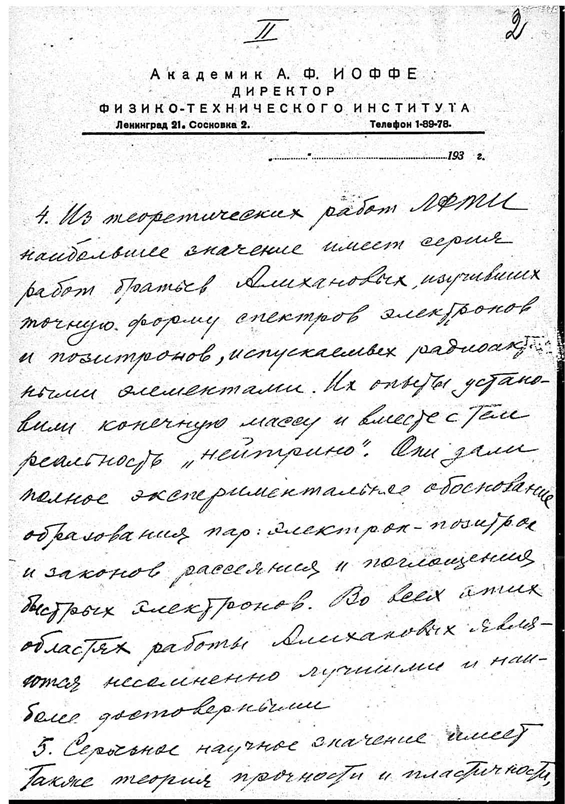 II
2
Академик А. Ф. ИОФФЕ
ДИРЕКТОР
ФИЗИКО-ТЕХНИЧЕСКОГО ИНСТИТУТА
Ленинград 21, Сосновка 2. Телефон 1-89-78.
"..........".......................................193 г.
4. Из теоретических работ ЛФТИ
наибольшее значение имеет серия
работ братьев Алихановых, изучивших
точную форму спектров электронов
и позитронов, испускаемых радиоактив-
ными элементами. Их опыты устано-
вили конечную массу и вместе с тем
реальность „нейтрино". Они дали
полное экспериментальное обоснование
образования пар: электрон-позитрон
и законов рассеяния и поглощения
быстрых электронов. Во всех этих
областях работы Алихановых явля-
ются несомненно лучшими и наи-
более достоверными
5. Серьезное научное значение имеет
также теория прочности и пластичности,